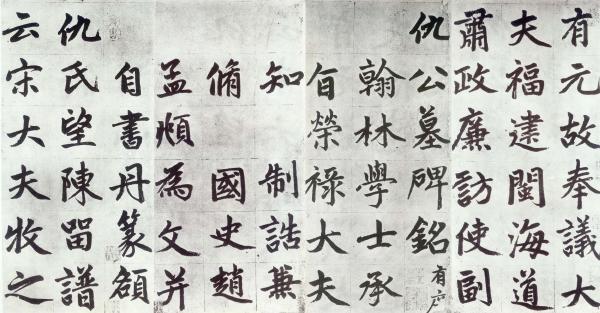 有元故奉議大
夫福建閩海道
肅政廉訪使副
仇公墓碑銘有序
翰林學士承
旨榮祿大夫
知 制誥兼
脩 國史趙
孟頫 為文并
自書丹篆額
仇氏望陳㽞譜
云宋大夫牧之